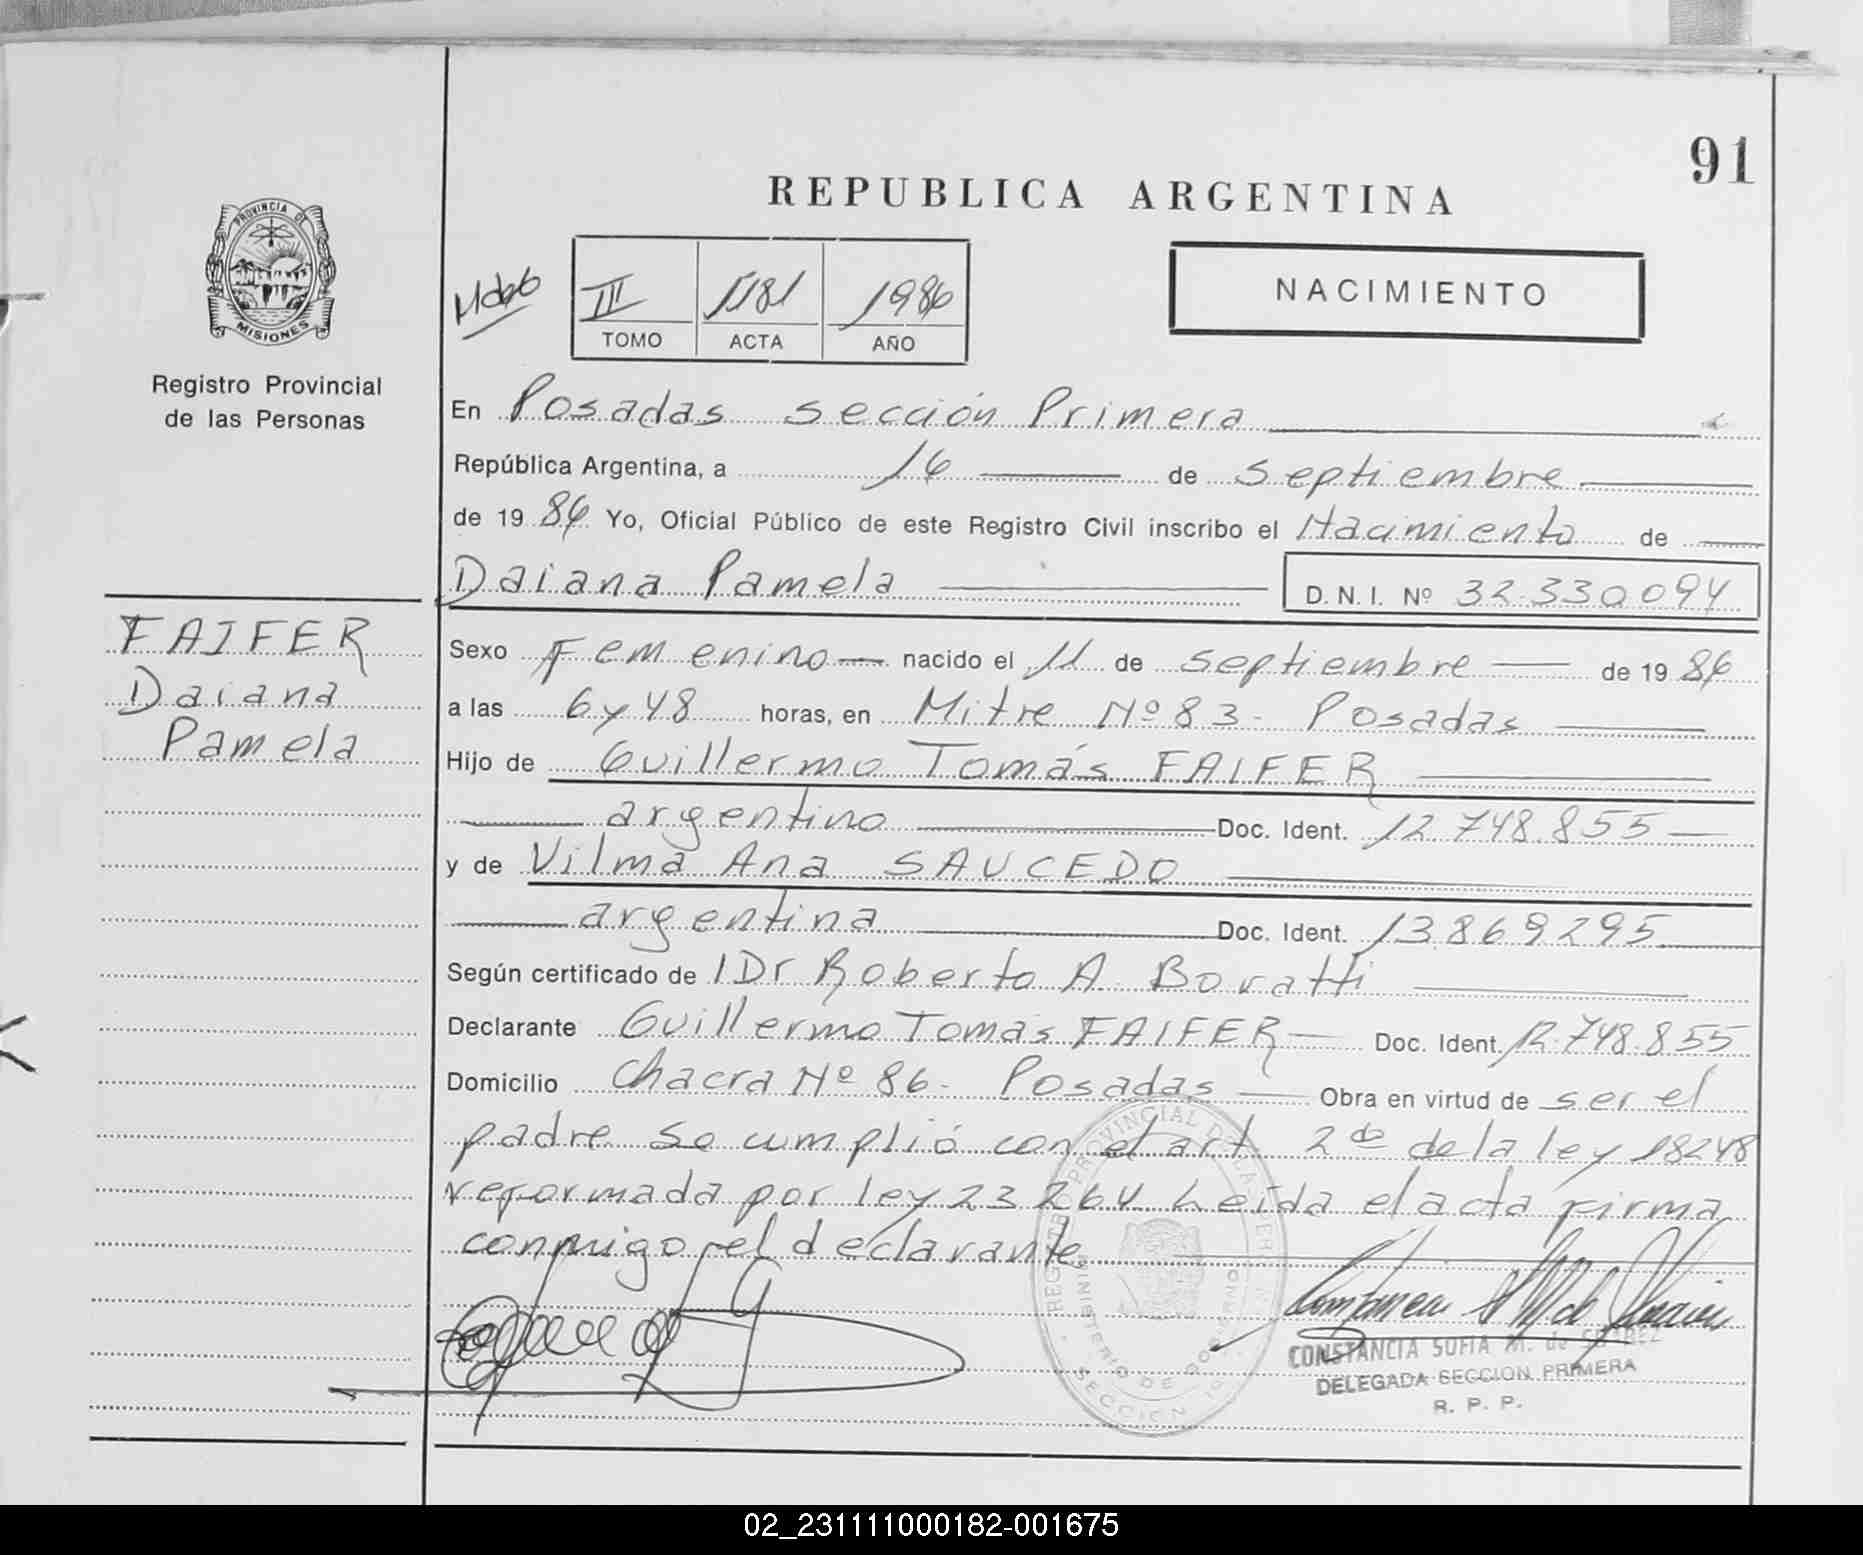 91
REPUBLICA ARGENTINA
PROVINCIA DE
MISIONES
NACIMIENTO
III 1181 1986
TOMO ACTA AÑO
Registro Provincial
de las Personas
En Posadas sección Primera
República Argentina, a 16 de septiembre
de 19 86 Yo, Oficial Público de este Registro Civil inscribo el Nacimiento de
Daiana Pamela D.N.I. Nº 32.330.094
FAIFER
Daiana
Pamela
Sexo Femenino nacido el 11 de septiembre de 19 86
a las 6 y 48 horas, en Mitre Nº 83 - Posadas
Hijo de Guillermo Tomás FAIFER
argentino Doc. Ident. 12.748.855
y de Vilma Ana SAUCEDO
argentina Doc. Ident. 13.869.295
Según certificado de l Dr Roberto A. Boratti
Declarante Guillermo Tomás FAIFER Doc. Ident. 12.748.855
Domicilio Chacra Nº 86 - Posadas Obra en virtud de ser el
padre se cumplió con el art 2do de la ley 18248
reformada por ley 23264 Leída el acta firma
conmigo el declarante
REGISTRO PROVINCIAL DE LAS PERSONAS
MINISTERIO DE GOBIERNO
SECCION
CONSTANCIA SOFIA M. de SUAREZ
DELEGADA SECCION PRIMERA
R. P. P.
02_231111000182-001675